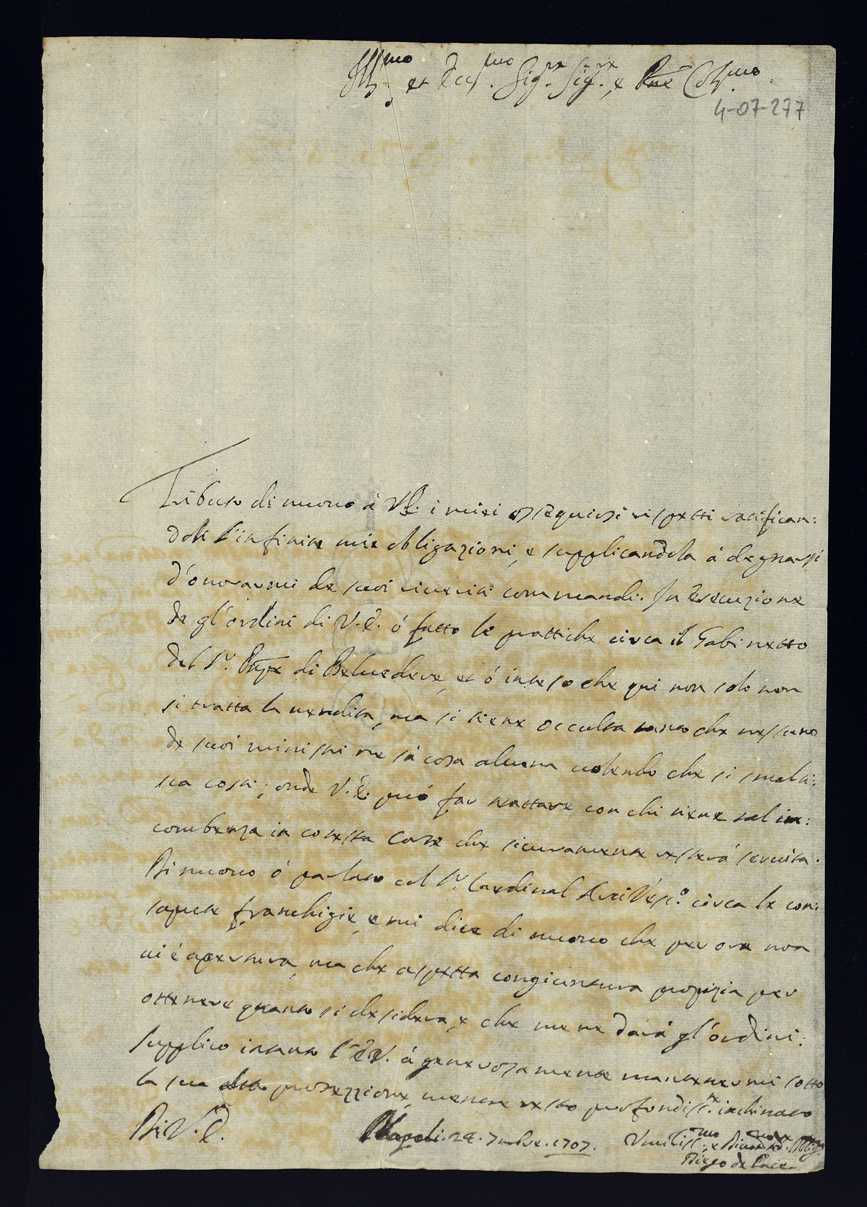 Ill.mo et Ecc.mo Sig.re Sig.re e P̃ne Col.mo
4-07-277
Tributo di nuovo á V.E. i miei ossequiosi rispetti ratifican:
doli l'infinite mie obligazioni, e supplicandola á degnarsi
d'onorarmi de suoi riveriti commandi. In esecuzione
de gl'ordini di V.E. ó fatto le prattiche circa il Gabinetto
del S.r Pñpe di Belvedere, et ó inteso che qui non solo non
si tratta la vendita, ma si tiene occulta tanto che nessuno
de suoi ministri ne sá cosa alcuna volendo che si smalti:
sca costí; onde V.E. puó far trattare con chi tiene tal in:
combenza in cotesta Corte che sicuramente resterá servita.
Di nuovo ó parlato col S.r Cardinal Arcivesc.o circa le con:
sapute franchigie, e mi dice di nuovo che per ora non
vi é apertura, ma che aspetta congiuntura propizia per
ottenere quanto si desidera, e che me ne dará gl'ordini;
supplico intanto l'E.V. á generosamente mantenermi sotto
la sua alta protezzione, mentre resto profondis.te inchinato
Di V.E. Napoli. 24. 7mbre. 1707. Umilis.mo e Obblig.
Diego de Pace